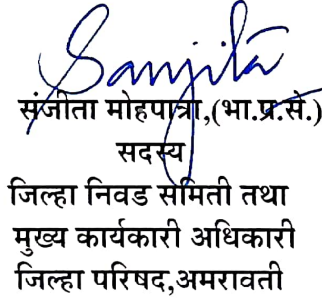 Sanjita
संजीता मोहपात्रा,(भा.प्र.से.)
सदस्य
जिल्हा निवड समिती तथा
मुख्य कार्यकारी अधिकारी
जिल्हा परिषद,अमरावती